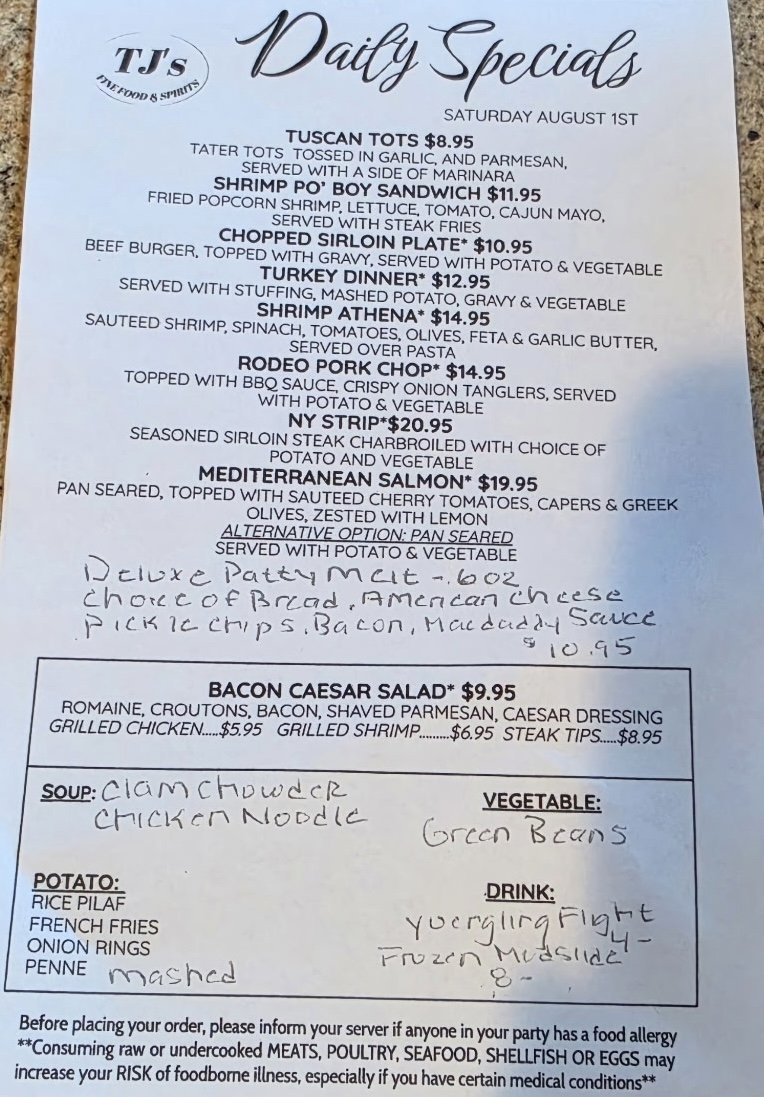 TJ's
FINE FOOD & SPIRITS
Daily Specials
SATURDAY AUGUST 1ST
TUSCAN TOTS $8.95
TATER TOTS TOSSED IN GARLIC, AND PARMESAN,
SERVED WITH A SIDE OF MARINARA
SHRIMP PO' BOY SANDWICH $11.95
FRIED POPCORN SHRIMP, LETTUCE, TOMATO, CAJUN MAYO,
SERVED WITH STEAK FRIES
CHOPPED SIRLOIN PLATE* $10.95
BEEF BURGER, TOPPED WITH GRAVY, SERVED WITH POTATO & VEGETABLE
TURKEY DINNER* $12.95
SERVED WITH STUFFING, MASHED POTATO, GRAVY & VEGETABLE
SHRIMP ATHENA* $14.95
SAUTEED SHRIMP, SPINACH, TOMATOES, OLIVES, FETA & GARLIC BUTTER,
SERVED OVER PASTA
RODEO PORK CHOP* $14.95
TOPPED WITH BBQ SAUCE, CRISPY ONION TANGLERS, SERVED
WITH POTATO & VEGETABLE
NY STRIP*$20.95
SEASONED SIRLOIN STEAK CHARBROILED WITH CHOICE OF
POTATO AND VEGETABLE
MEDITERRANEAN SALMON* $19.95
PAN SEARED, TOPPED WITH SAUTEED CHERRY TOMATOES, CAPERS & GREEK
OLIVES, ZESTED WITH LEMON
ALTERNATIVE OPTION: PAN SEARED
SERVED WITH POTATO & VEGETABLE
Deluxe Patty Melt - 6oz
Choice of Bread, American Cheese
Pickle chips, Bacon, Macdaddy Sauce
$10.95
BACON CAESAR SALAD* $9.95
ROMAINE, CROUTONS, BACON, SHAVED PARMESAN, CAESAR DRESSING
GRILLED CHICKEN.....$5.95 GRILLED SHRIMP........$6.95 STEAK TIPS.....$8.95
SOUP: Clam Chowder
Chicken Noodle
VEGETABLE:
Green Beans
POTATO:
RICE PILAF
FRENCH FRIES
ONION RINGS
PENNE mashed
DRINK:
Yuergling Flight
4-
Frozen Mudslide
8-
Before placing your order, please inform your server if anyone in your party has a food allergy
**Consuming raw or undercooked MEATS, POULTRY, SEAFOOD, SHELLFISH OR EGGS may
increase your RISK of foodborne illness, especially if you have certain medical conditions**